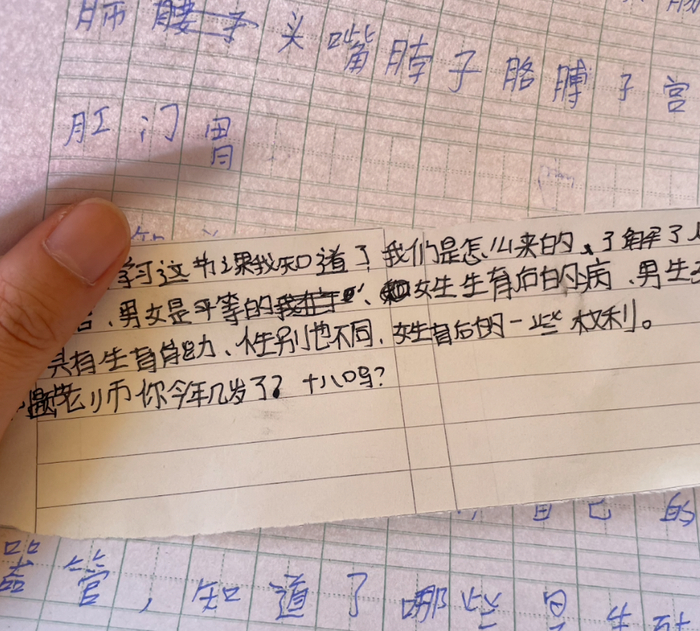 师 头 嘴 脖子 胳膊 子宫
肛门 胃
学习这节课我知道了我们是怎么来的、了解了
、男女是平等的、女生生育后的病、男生
具有生育能力、性别也不同,女生有后的一些权利。
老师你今年几岁了?十八吗?
自己的
器管,知道了哪些是